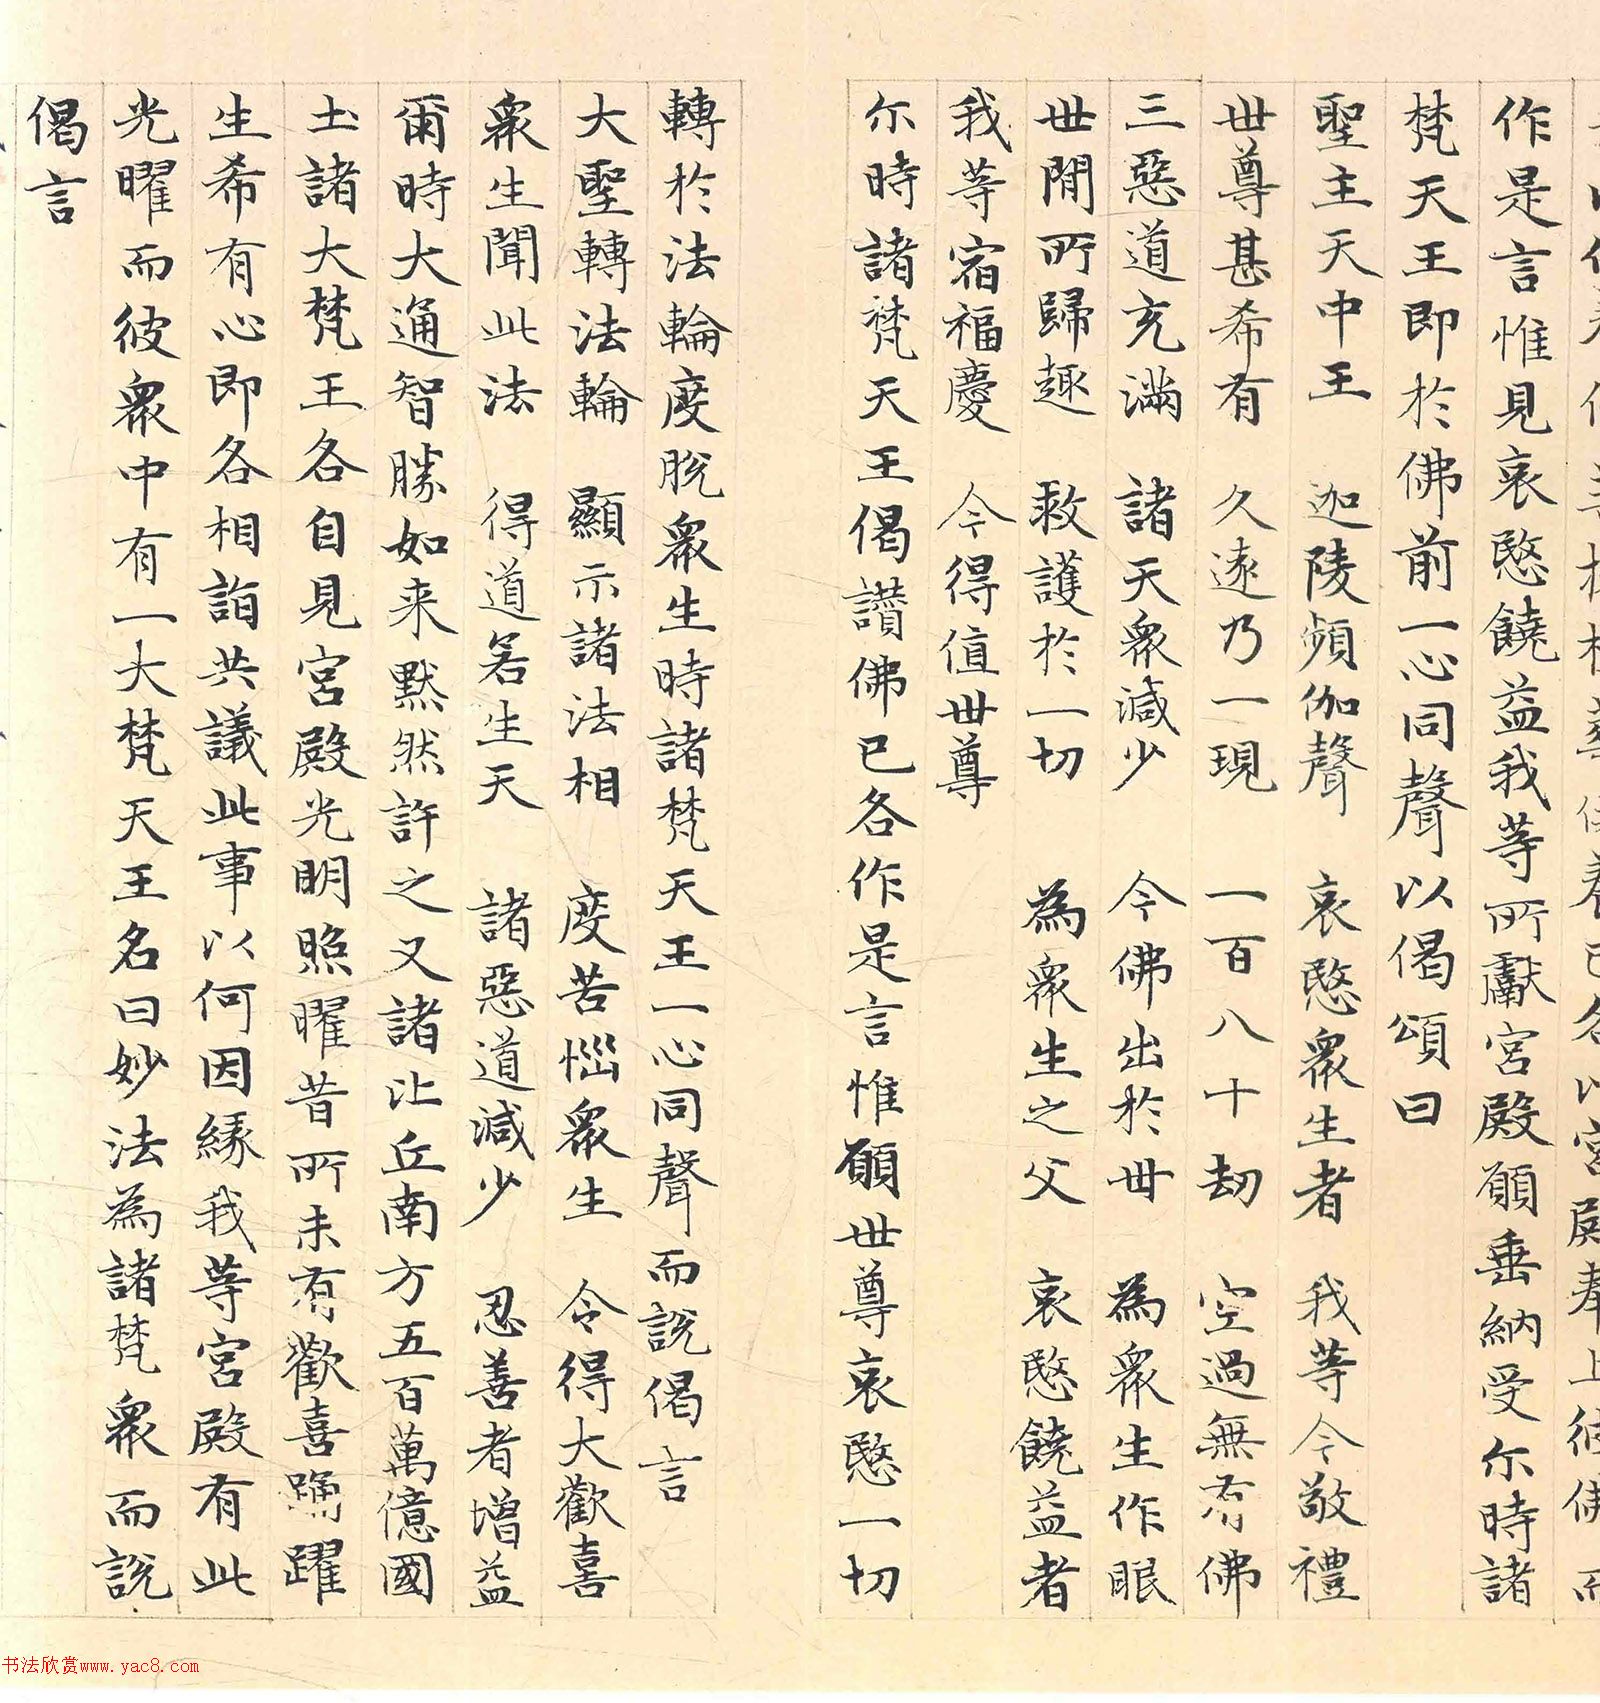 作是言惟見哀愍饒益我等所獻宮殿願垂納受尒時諸
梵天王即於佛前一心同聲以偈頌曰
聖主天中王 迦陵頻伽聲 哀愍衆生者 我等今敬禮
世尊甚希有 久遠乃一現 一百八十劫 空過無有佛
三惡道充滿 諸天衆減少 今佛出於世 為衆生作眼
世間所歸趣 救護於一切 為衆生之父 哀愍饒益者
我等宿福慶 今得值世尊
尒時諸梵天王偈讚佛已各作是言惟願世尊哀愍一切
轉於法輪度脫衆生時諸梵天王一心同聲而說偈言
大聖轉法輪 顯示諸法相 度苦惱衆生 令得大歡喜
衆生聞此法 得道若生天 諸惡道減少 忍善者增益
爾時大通智勝如来默然許之又諸比丘南方五百萬億國
土諸大梵王各自見宮殿光明照曜昔所未有歡喜踊躍
生希有心即各相詣共議此事以何因緣我等宮殿有此
光曜而彼衆中有一大梵天王名曰妙法為諸梵衆而說
偈言
书法欣赏www.yac8.com